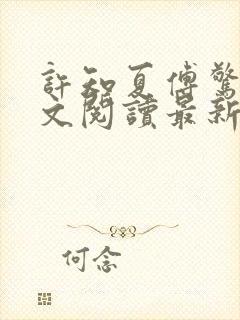 許知夏傅驚
文閱讀最新
何念